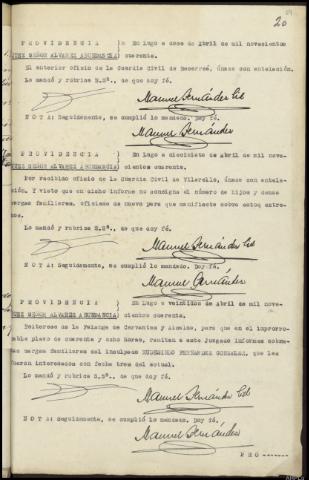 20
P R O V I D E N C I A ) En Lugo a doce de Abril de mil novecientos
JUEZ SEÑOR ALVAREZ ) cuarenta.
El anterior oficio de la Guardia Civil de Becerreá, únase con antelación.
Lo mandó y rúbrica S.Sª., de que doy fé.
Manuel Fernández
N O T A: Seguidamente, se cumplió lo mandado. Doy fé.
Manuel Fernández
P R O V I D E N C I A ) En Lugo a diecisiete de Abril de mil nove-
JUEZ SEÑOR ALVAREZ ) cientos cuarenta.
Por recibido oficio de la Guardia Civil de , únase con antela-
ción. Y visto que en dicho informe no consigna el número de hijos y demás
cargas familiares, ofíciese de nuevo para que manifieste sobre estos extre-
mos.
Lo mandó y rúbrica S.Sª., de que doy fé.
Manuel Fernández
N O T A: Seguidamente, se cumplió lo mandado. Doy fé.
Manuel Fernández
P R O V I D E N C I A ) En Lugo a veintidos de Abril de mil nove-
JUEZ SEÑOR ALVAREZ ) cientos cuarenta.
Reiterese de la Falange de Cervantes y Alcaide, para que en el improrro-
gable plazo de cuarenta y ocho horas, remitan a este Juzgado informes sobre
las cargas familiares del inculpado FERNANDEZ GONZALEZ, que les
fueron interesados con fecha tres del actual.
Lo mandó y rúbrica S.Sª., de que doy fé.
Manuel Fernández
N O T A: Seguidamente, se cumplió lo mandado. Doy fé.
Manuel Fernández
P R O ------